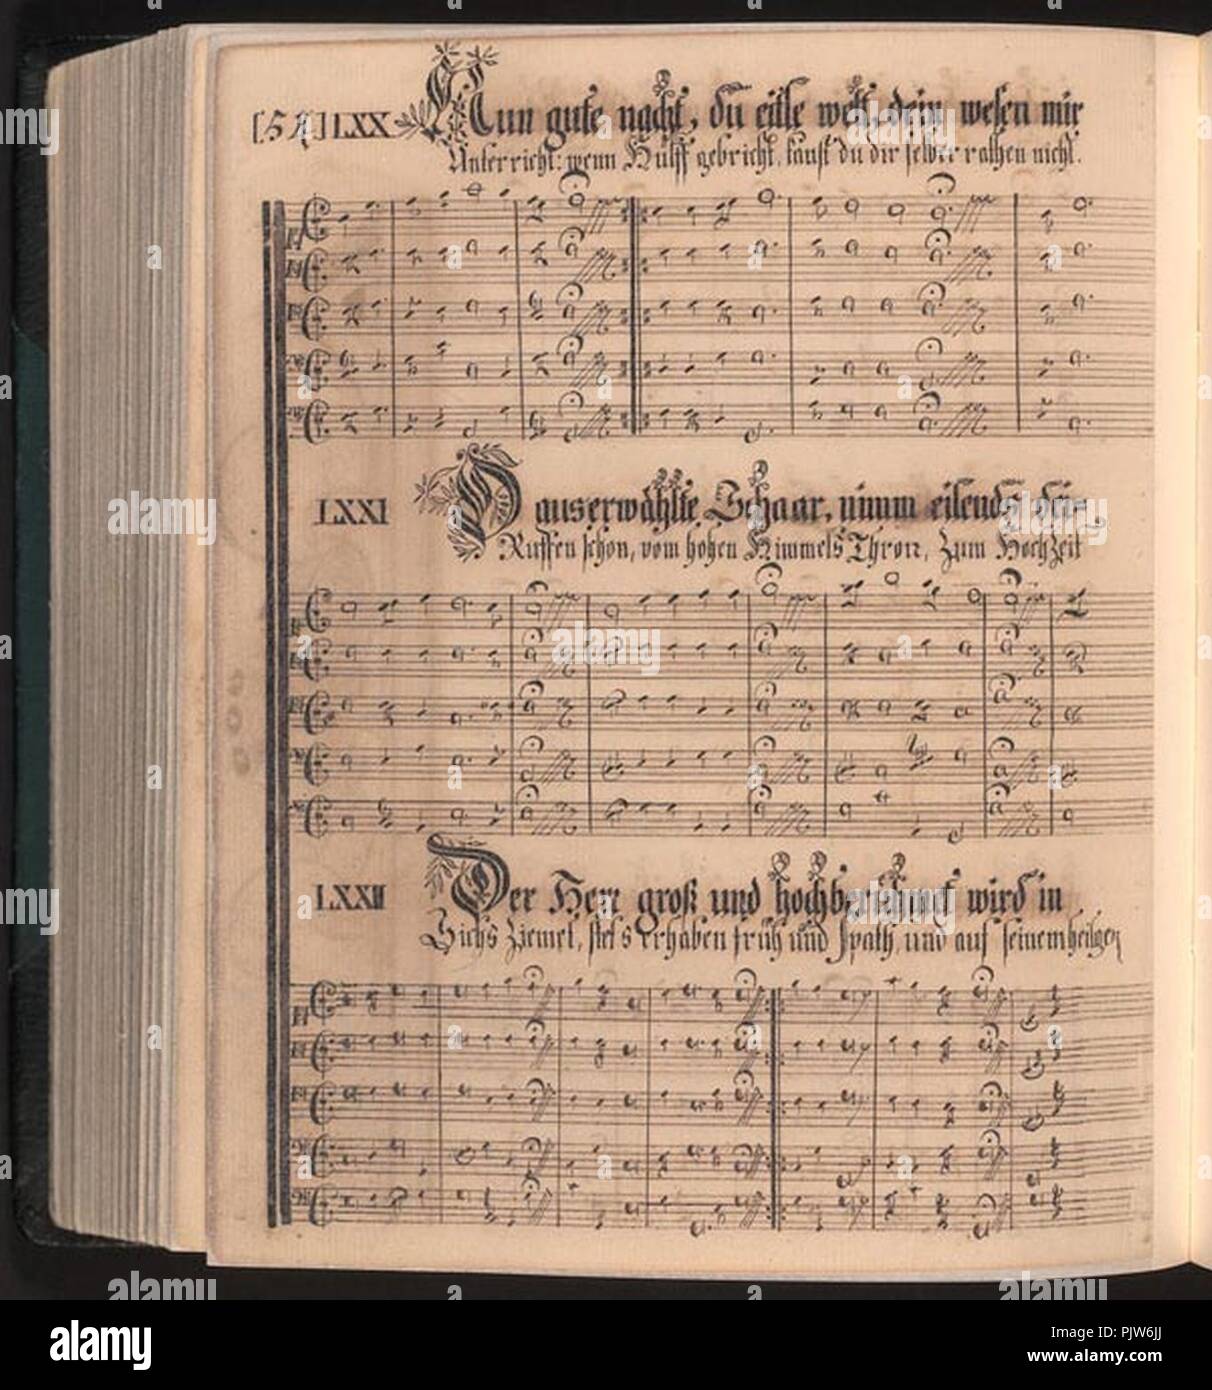 LXX Nun gute nacht, du eitle welt, dein wesen mir
Unterricht: wenn Hülff gebricht, kanst du dir selber rathen nicht.
LXXI O auserwählte Schaar, nimm eilends dei-
Ruffen schon, vom hohen Himmels Thron, Zum HochZeit
LXXII Der Herr groß und hochberühmt wird in
Ziemet, stets Erhaben früh und Spath, und auf seinem heilgen
alamy
Image ID: PJW6JJ
www.alamy.com